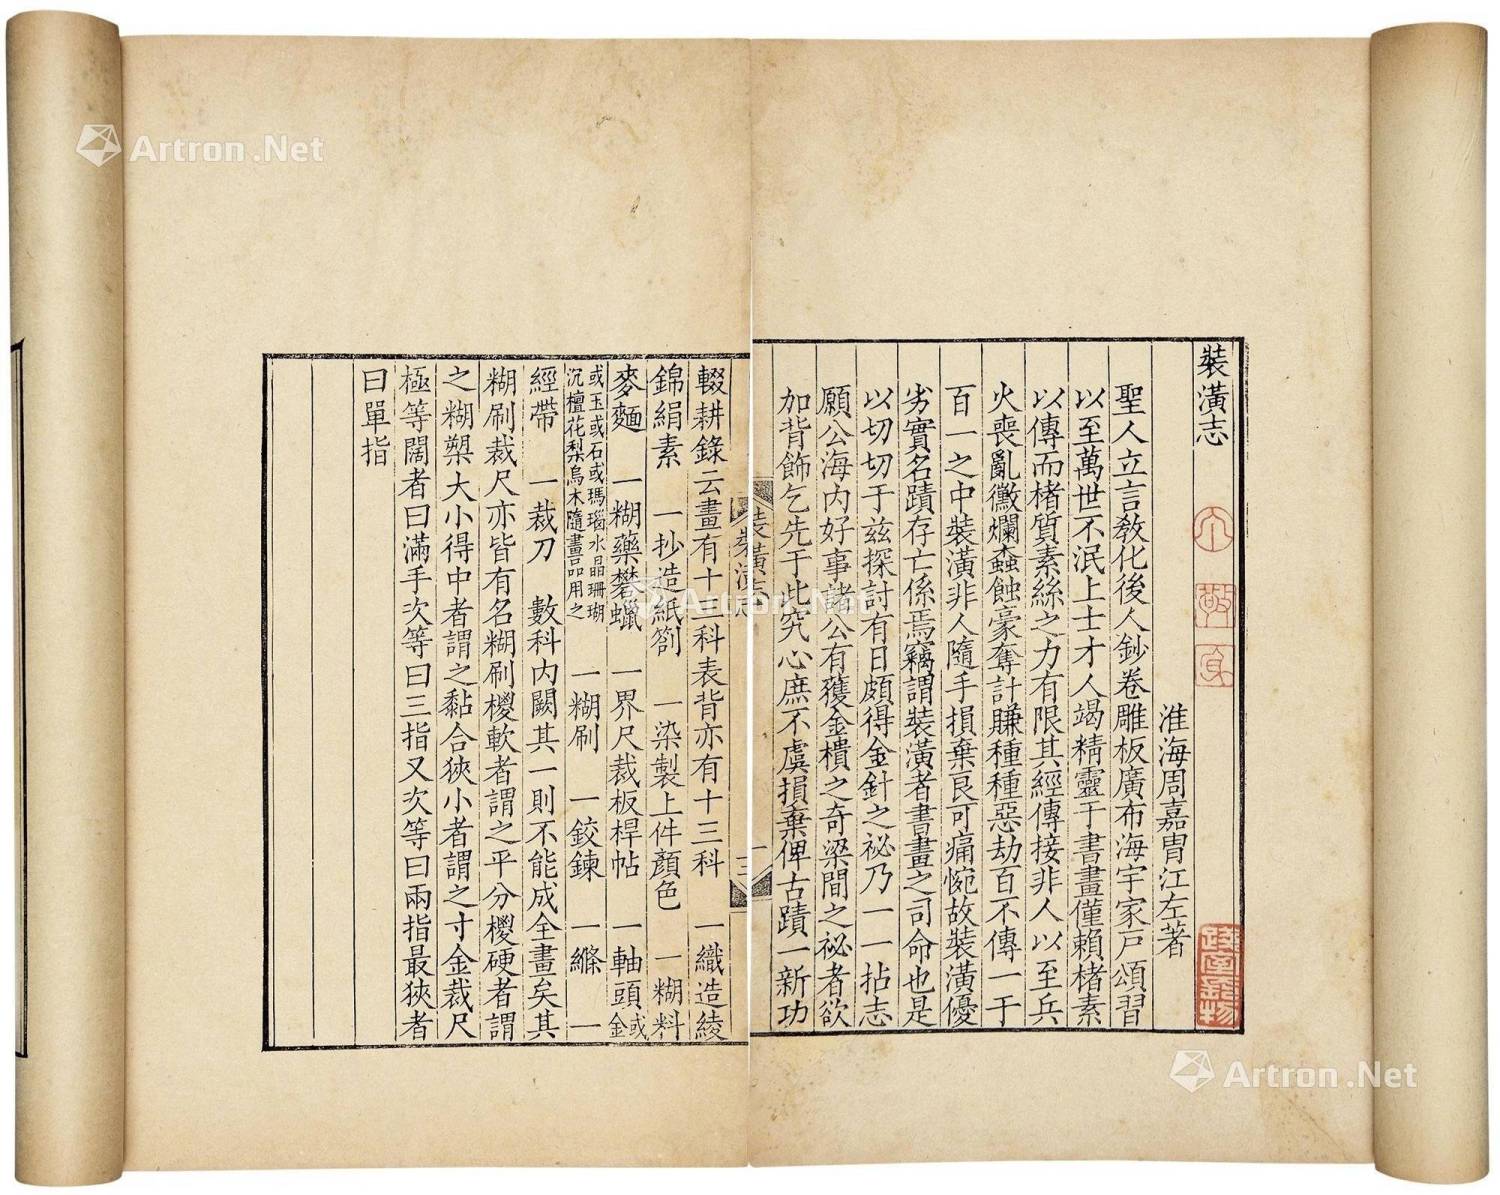 裝潢志
淮海周嘉胄江左著
聖人立言教化後人鈔卷雕板廣布海宇家戶頌習
以至萬世不泯上士才人竭精靈于書畫僅賴楮素
以傳而楮質素絲之力有限其經傳接非人以至兵
火喪亂黴爛蟲蝕豪奪計賺種種惡劫百不傳一于
百一之中裝潢非人隨手損棄良可痛惋故裝潢優
劣實名蹟存亡係焉竊謂裝潢者書畫之司命也是
以切切于兹探討有日頗得金針之祕乃一一拈志
願公海内好事諸公有獲金櫝之奇梁間之祕者欲
加背飾乞先于此究心庶不虞損棄俾古蹟一新功
裝潢志
一
輟耕錄云畫有十三科表背亦有十三科 一織造綾
錦絹素 一抄造紙劄 一染製上件顏色 一糊料
麥麵 一糊藥礬蠟 一界尺裁板桿帖 一軸頭或金
或玉或石或瑪瑙水晶珊瑚
沉檀花梨烏木隨畫品用之 一糊刷 一鉸鍊 一縧 一
經帶 一裁刀 數科内闕其一則不能成全畫矣其
糊刷裁尺亦皆有名糊刷椶軟者謂之平分椶硬者謂
之糊槊大小得中者謂之黏合狹小者謂之寸金裁尺
極等闊者曰滿手次等曰三指又次等曰兩指最狹者
曰單指
Artron.Net
Artron.Net
Artron.Net